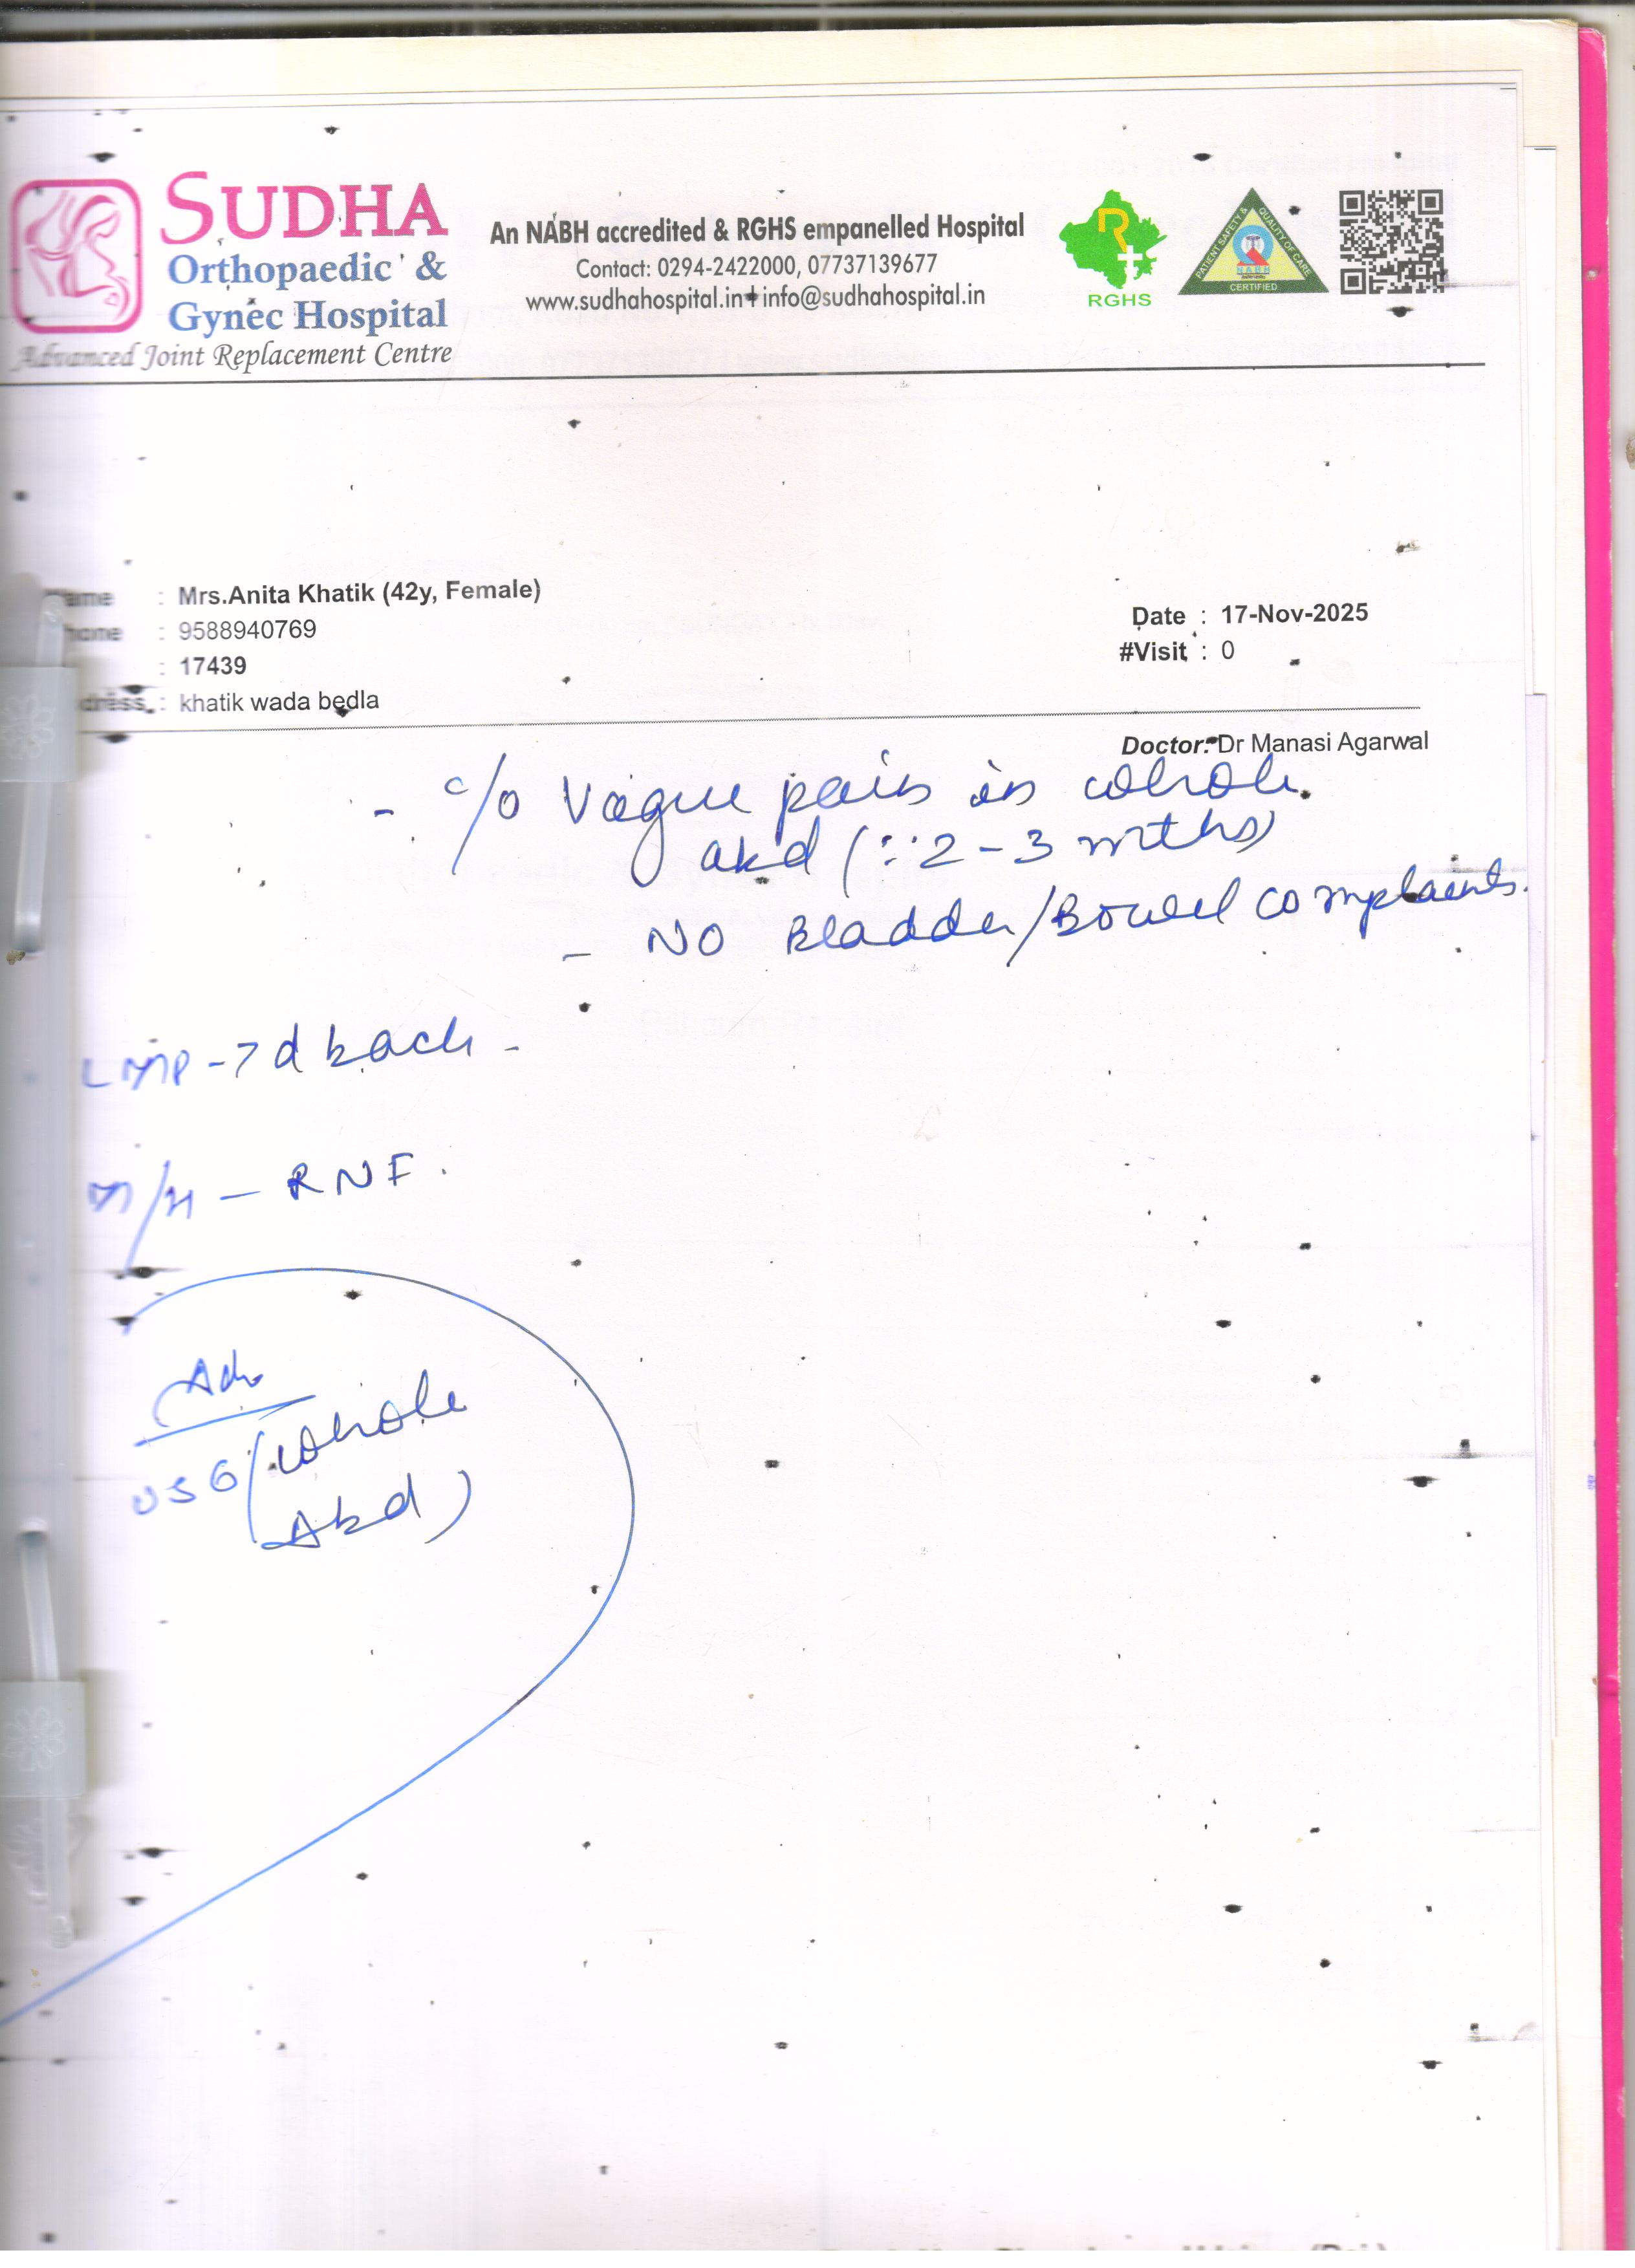 SUDHA
Orthopaedic &
Gynec Hospital
Advanced Joint Replacement Centre
An NABH accredited & RGHS empanelled Hospital
Contact: 0294-2422000, 07737139677
www.sudhahospital.in info@sudhahospital.in
R
RGHS
PATIENT SAFETY & QUALITY OF CARE
NABH
CERTIFIED
ame : Mrs.Anita Khatik (42y, Female)
hone : 9588940769
: 17439
dress : khatik wada bedla
Date : 17-Nov-2025
#Visit : 0
Doctor: Dr Manasi Agarwal
- c/o Vague pain in whole
abd (∵ 2-3 mths)
- NO Bladder/Bowel complaints.
LMP - 7 d back -
M/H - RNF.
Adv
USG (whole
Abd)